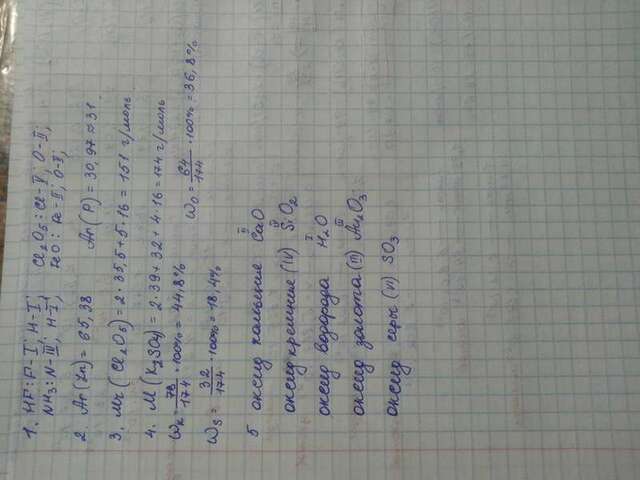 1. HF: F-I; H-I; Cl₂O₅: Cl-V; O-II;
NH₃: N-III; H-I; FeO: Fe-II; O-II;
2. Ar(Zn) = 65,38 Ar(P) = 30,97 ≈ 31
3. Mr(Cl₂O₅) = 2·35,5 + 5·16 = 151 г/моль
4. M(K₂SO₄) = 2·39 + 32 + 4·16 = 174 г/моль
Wk = 78/174 · 100% = 44,8% Wo = 64/174 · 100% = 36,8%
Ws = 32/174 · 100% = 18,4%
5 оксид кальция CaO
оксид кремния (IV) SiO₂
оксид водорода H₂O
оксид золота (III) Au₂O₃
оксид серы (VI) SO₃